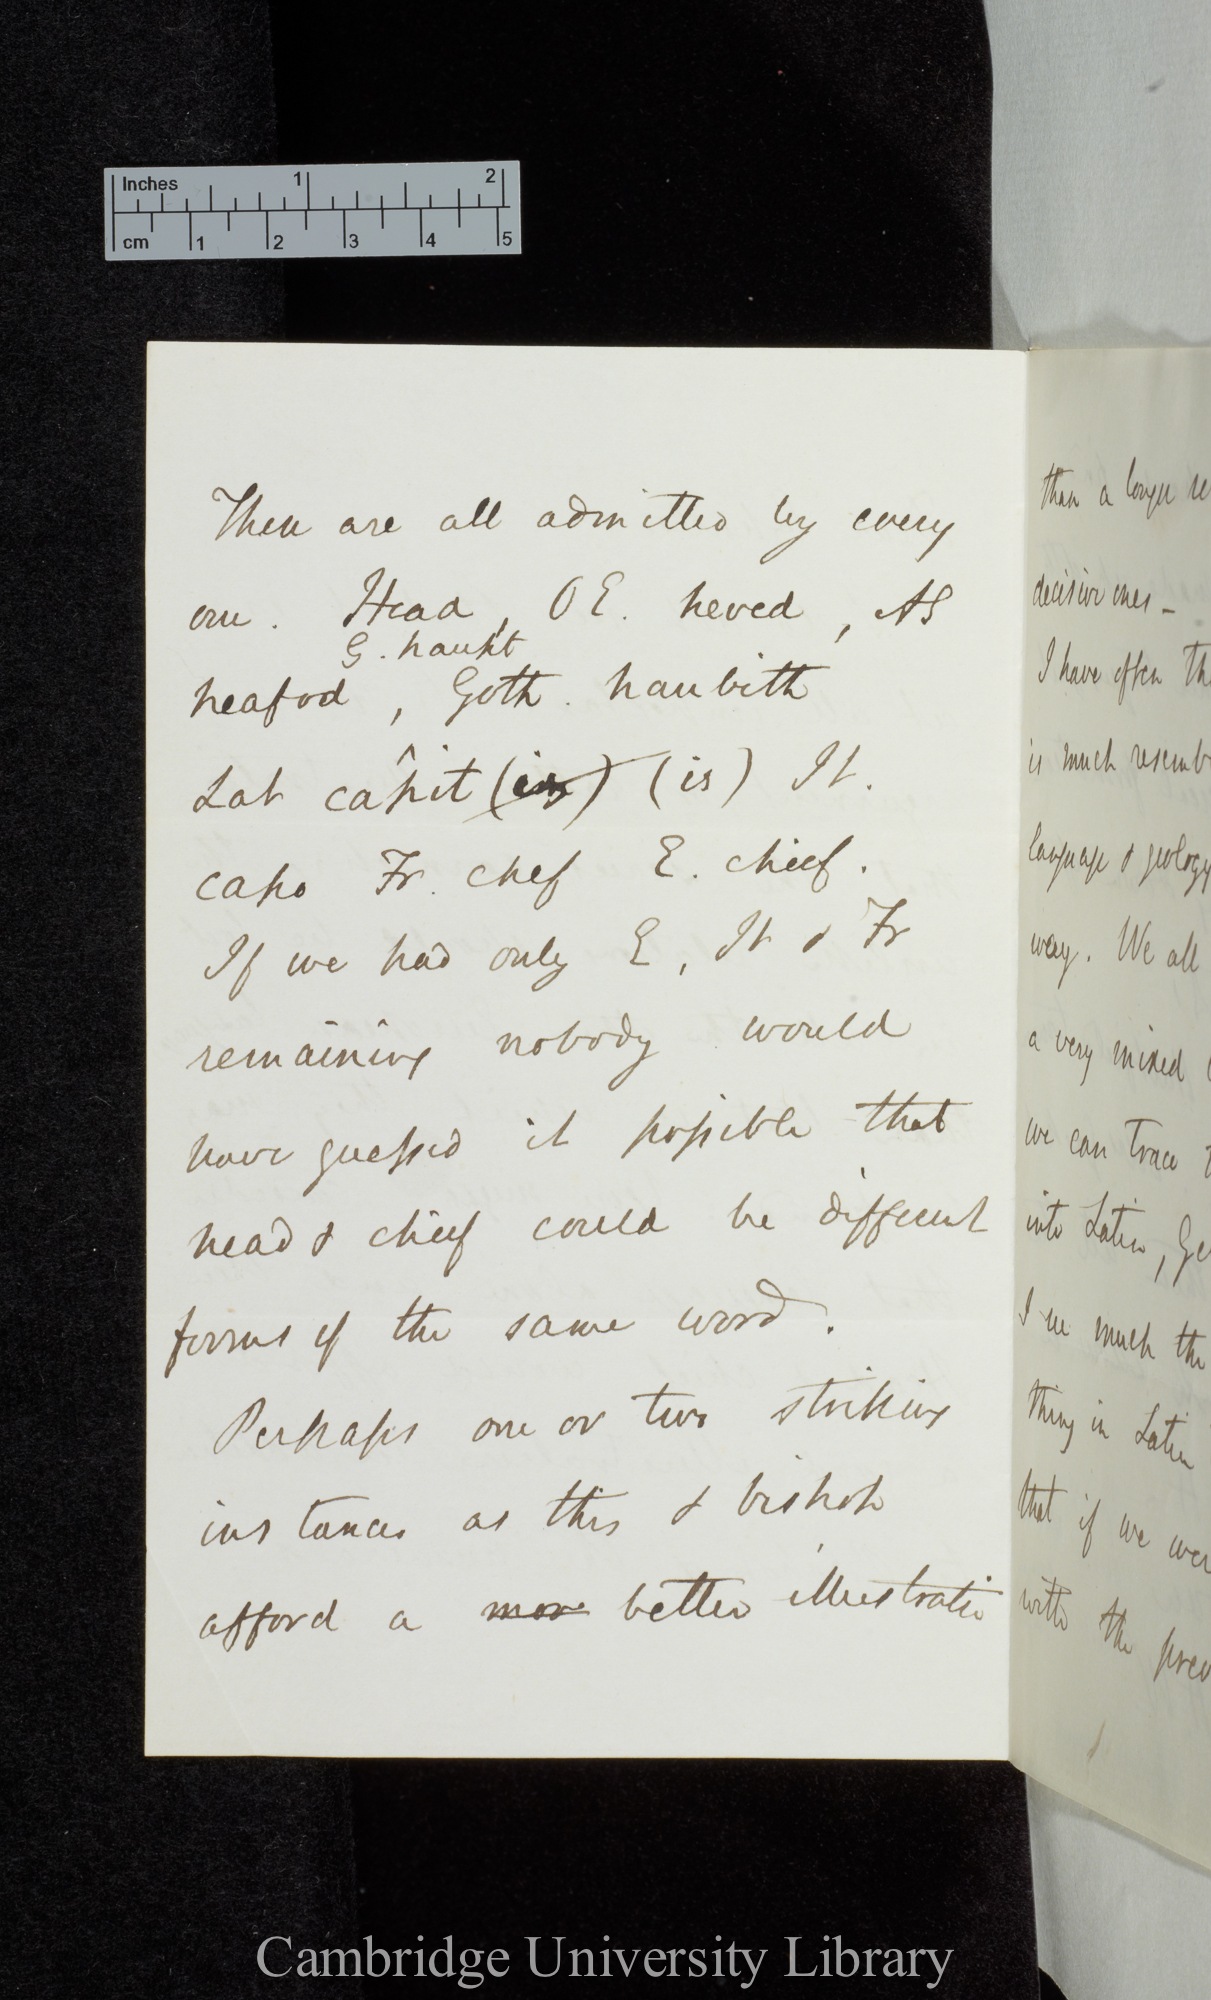 Inches 1 2
cm 1 2 3 4 5
These are all admitted by every
one. Head, OE. heved, AS
G. haupt
heafod, Goth. haubith
Lat capit (is) (is) It.
capo Fr. chef E. chief.
If we had only E, It & Fr
remaining nobody would
have guessed it possible that
head & chief could be different
forms of the same word.
Perhaps one or two striking
instances as this & bishop
afford a more better illustratio
than a longer se
decisive ones —
I have often th
is much resemb
language & geology
way. We all
a very mixed
we can trace t
into Latin, Ge
I see much the
thing in Latin
that if we wer
with the prev
Cambridge University Library